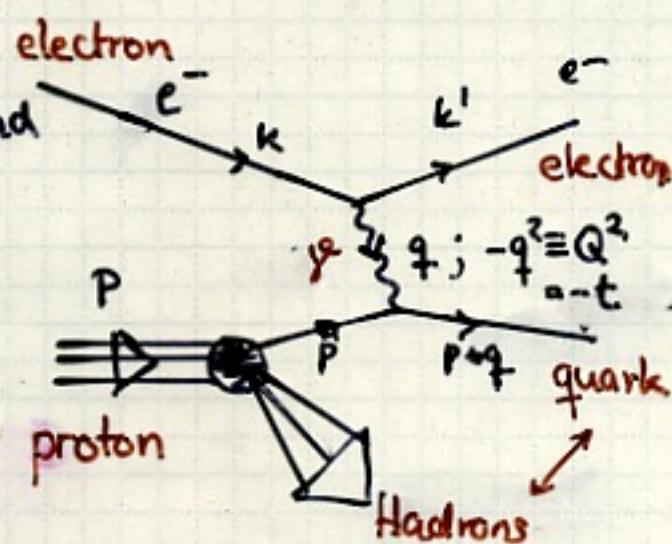 electron
e⁻ k k' e⁻
electron
γ q ; -q² ≡ Q²
= -t.
P
p p+q
quark
proton
Hadrons